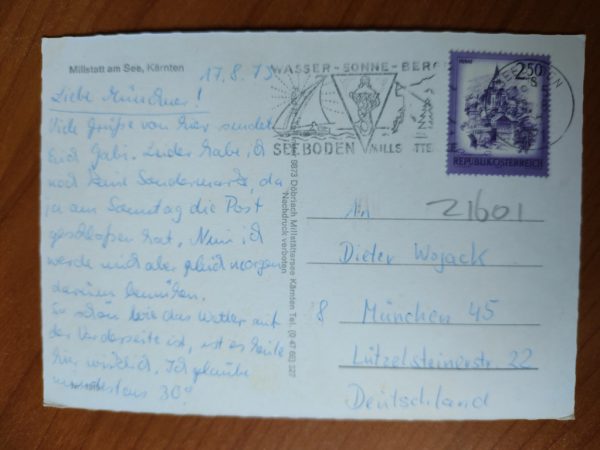 Millstatt am See, Kärnten
17.8.75
Liebe Münchner!
Viele Grüße von hier sendet
Euch Gabi. Leider habe ich
noch keine Sondermarke, da
ja am Samstag die Post
geschlossen hat. Nun ich
werde mich aber gleich morgen
darum bemühen.
So schön wie das Wetter auf
der Vorderseite ist, ist es heute
hier wirklich. Ich glaube
mindestens 30°.
9873 Döbriach Millstättersee Kärnten Tel. (0 42 46) 327
Nachdruck verboten
WASSER - SONNE - BERGE
SEEBODEN MILLSTÄTTERSEE
2.50
S
REPUBLIK ÖSTERREICH
21601
An
Dieter Wojack
8 München 45
Lützelsteinerstr. 22
Deutschland